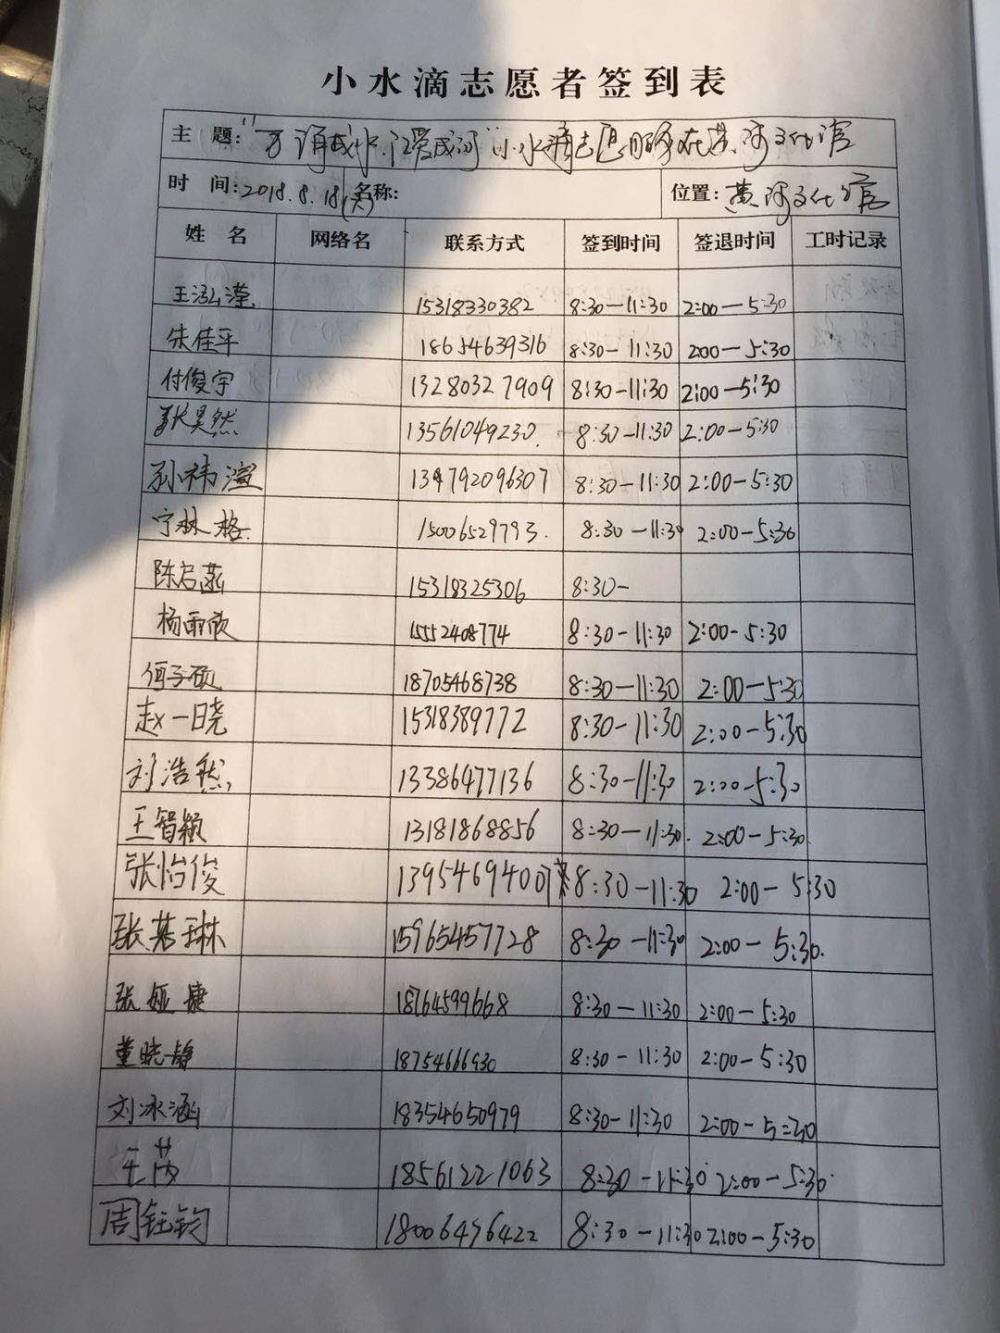 小水滴志愿者签到表
主 题: 小水滴志愿服务在黄河文化馆
时 间: 2018.8.18(六) 名称: 位置: 黄河文化馆
姓 名 网络名 联系方式 签到时间 签退时间 工时记录
王泓滢 15318330382 8:30—11:30 2:00—5:30
朱佳平 18654639316 8:30—11:30 2:00—5:30
付俊宇 13280327909 8:30—11:30 2:00—5:30
张昊然 13561049230. 8:30—11:30 2:00—5:30
孙祎瀛 134792096307 8:30—11:30 2:00—5:30
宁林格 15006529793. 8:30—11:30 2:00—5:30
陈启菡 15318325306 8:30—
杨雨欣 15552408774 8:30—11:30 2:00—5:30
何子硕 18705468738 8:30—11:30 2:00—5:30
赵一晓 15318389772 8:30—11:30 2:00—5:30
刘浩然 13386477136 8:30—11:30 2:00—5:30
王智颖 13181868856 8:30—11:30. 2:00—5:30
张怡俊 13954694007 8:30—11:30 2:00—5:30
张琳 15965457728 8:30—11:30 2:00—5:30.
张娅捷 18764599668 8:30—11:30 2:00—5:30
董晓静 18754666930 8:30—11:30 2:00—5:30
刘冰涵 18354650979 8:30—11:30 2:00—5:30
王芮 18561221063 8:30—11:30 2:00—5:30
周钰钧 18006476422 8:30—11:30 2:00—5:30